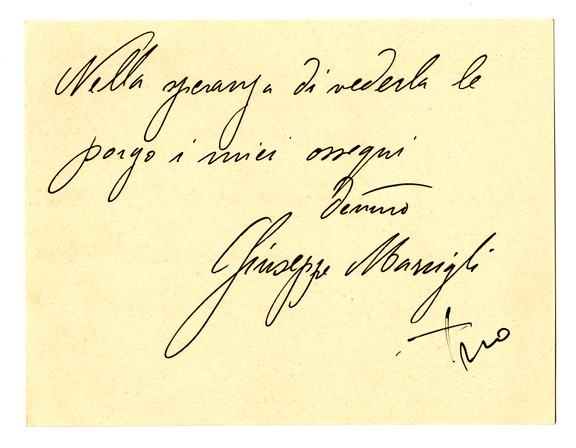 Nella speranza di vederla le
porgo i miei ossequi
Dev.mo
Giuseppe Marsigli